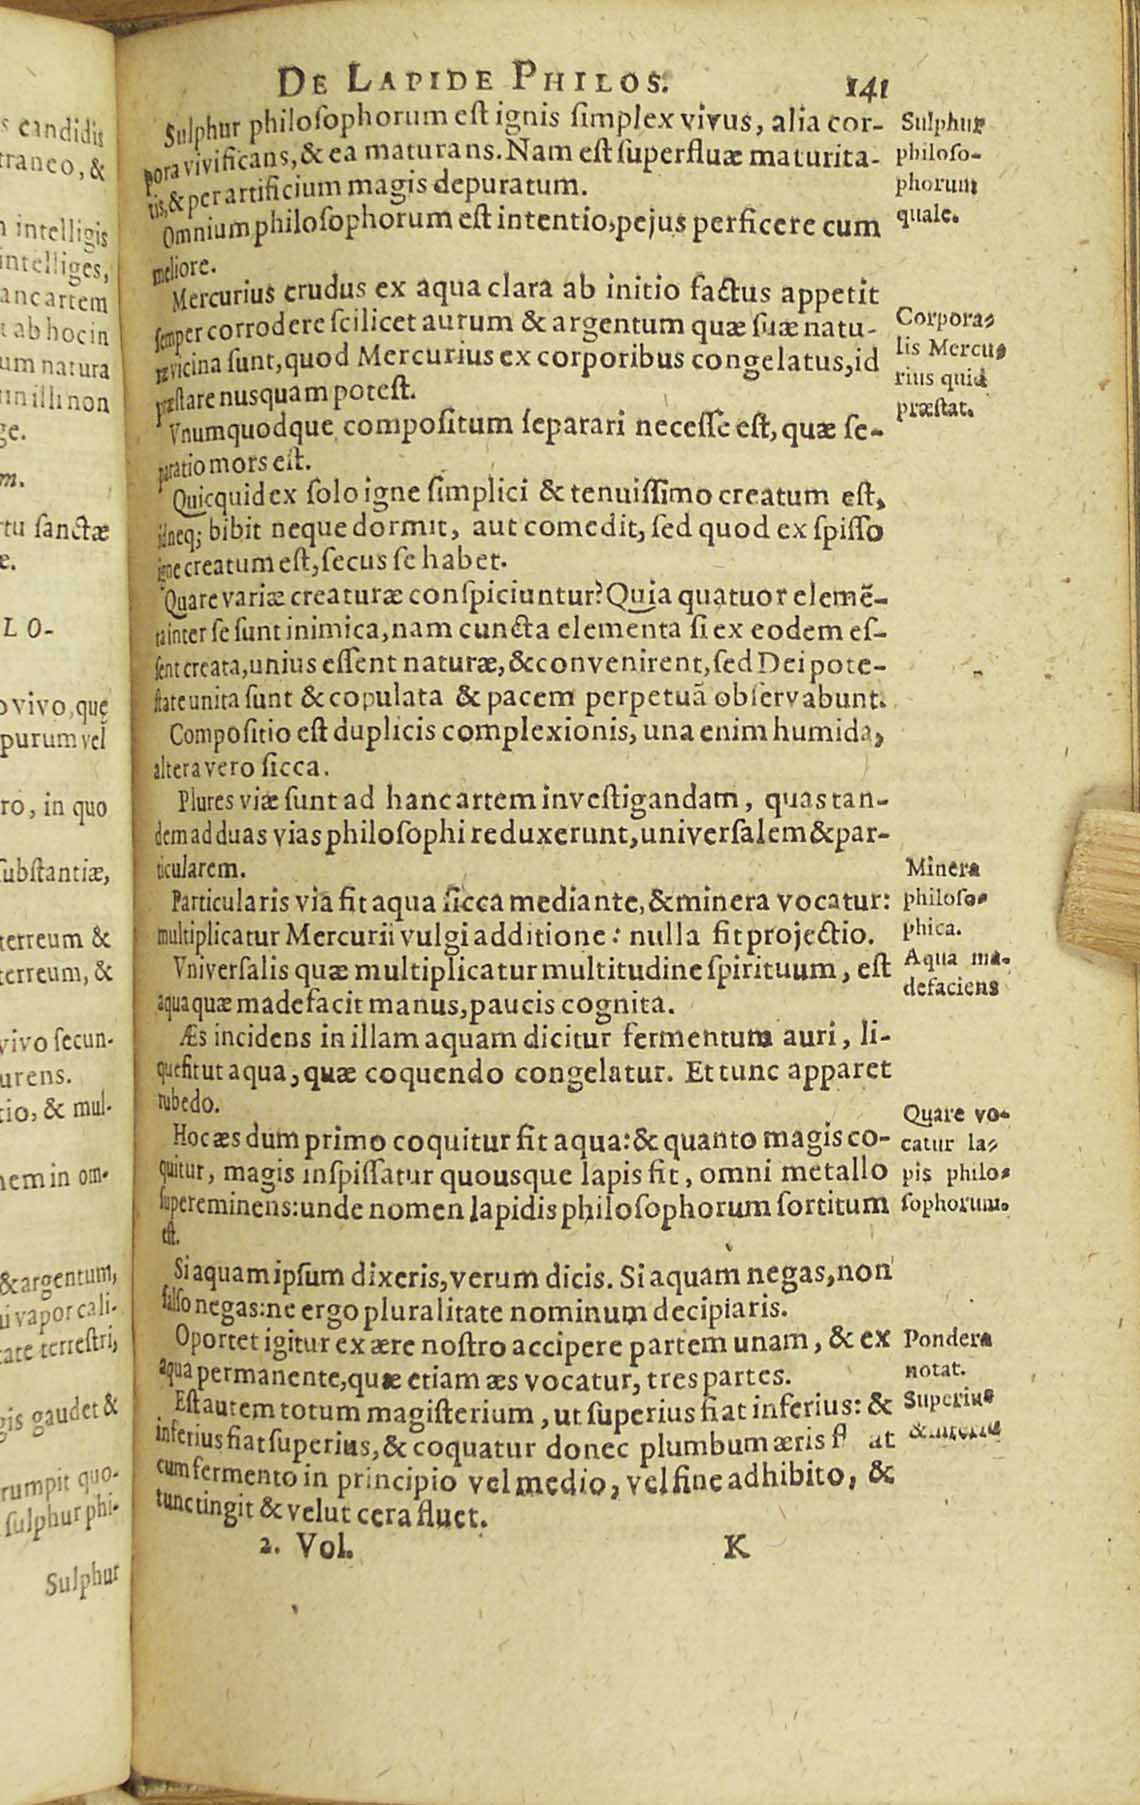 s candidis
traneo, &
intelligis
intelliges,
anc artem
t ab hocin
um natura
un illi non
ge.
m.
rtu sanctæ
e.
L O-
o vivo, quę
purum vel
ro, in quo
substantiæ,
terreum &
terreum, &
vivo secun-
urens.
tio, & mul-
nem in om-
& argentum,
ui vapor cali-
tate terrestri,
gis gaudet &
rumpit quo-
sulphur phi-
Sulphur
DE LAPIDE PHILOS. 141
Sulphur philosophorum est ignis simplex vivus, alia cor-
pora vivificans, & ea maturans. Nam est superfluæ maturita-
tis, & per artificium magis depuratum.
Omnium philosophorum est intentio, pejus perficere cum
meliore.
Mercurius crudus ex aqua clara ab initio factus appetit
semper corrodere scilicet aurum & argentum quæ suæ natu-
ræ vicina sunt, quod Mercurius ex corporibus congelatus, id
præstare nusquam potest.
Vnumquodque compositum separari necesse est, quæ se-
paratio mors est.
Quicquid ex solo igne simplici & tenuissimo creatum est,
id neq; bibit neque dormit, aut comedit, sed quod ex spisso
igne creatum est, secus se habet.
Quare variæ creaturæ conspiciuntur? Quia quatuor elemẽ-
ta inter se sunt inimica, nam cuncta elementa si ex eodem es-
sent creata, unius essent naturæ, & convenirent, sed Dei pote-
state unita sunt & copulata & pacem perpetuã observabunt.
Compositio est duplicis complexionis, una enim humida,
altera vero sicca.
Plures viæ sunt ad hanc artem investigandam, quas tan-
dem ad duas vias philosophi reduxerunt, universalem & par-
ticularem.
Particularis via fit aqua sicca mediante, & minera vocatur:
multiplicatur Mercurii vulgi additione: nulla fit projectio.
Vniversalis quæ multiplicatur multitudine spirituum, est
aqua quæ madefacit manus, paucis cognita.
Æs incidens in illam aquam dicitur fermentum auri, li-
quefit ut aqua, quæ coquendo congelatur. Et tunc apparet
rubedo.
Hoc æs dum primo coquitur fit aqua: & quanto magis co-
quitur, magis inspissatur quousque lapis fit, omni metallo
supereminens: unde nomen lapidis philosophorum sortitum
est.
Si aquam ipsum dixeris, verum dicis. Si aquam negas, non
falso negas: ne ergo pluralitate nominum decipiaris.
Oportet igitur ex ære nostro accipere partem unam, & ex
aqua permanente, quæ etiam æs vocatur, tres partes.
Est autem totum magisterium, ut superius fiat inferius: &
inferius fiat superius, & coquatur donec plumbum æris
cum fermento in principio vel medio, vel fine adhibito, &
tunc tingit & velut cera fluet.
2. Vol. K
Sulphur
philoso-
phorum
quale.
Corpora-
lis Mercu-
rius quid
præstat.
Minera
philoso-
phica.
Aqua ma-
defaciens
Quare vo-
catur la-
pis philo-
sophorum.
Pondera
notat.
Superius